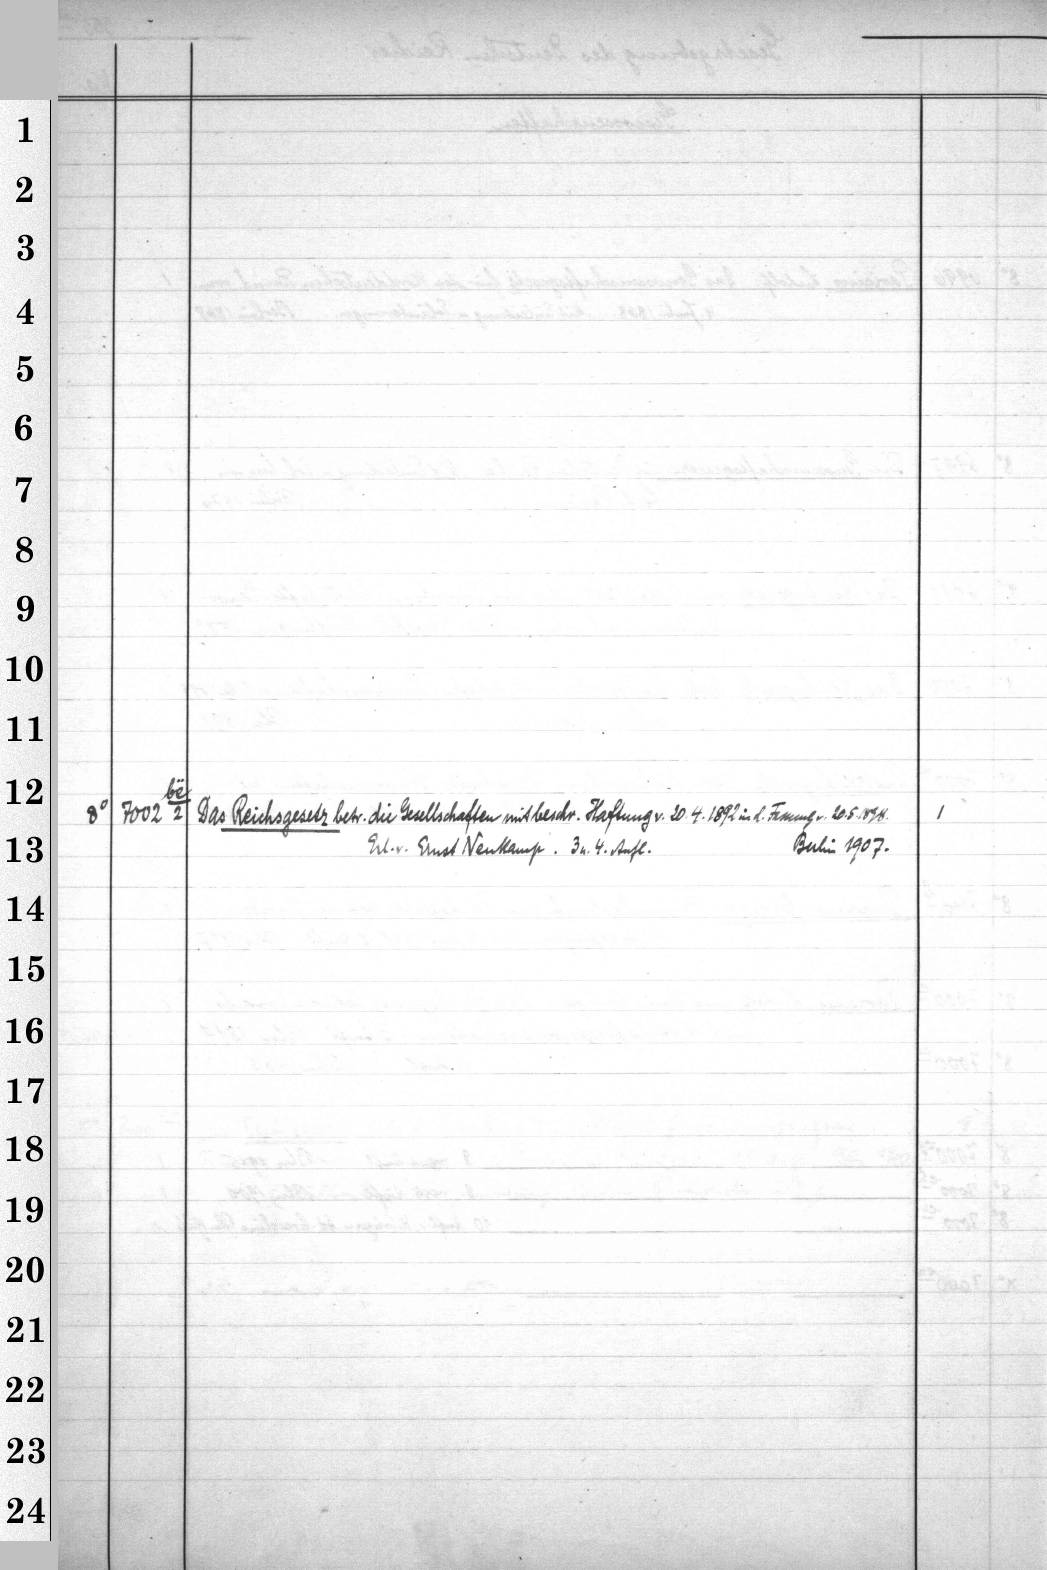 1
2
3
4
5
6
7
8
9
10
11
12
8° 7002 bë/2 Das Reichsgesetz betr. die Gesellschaften mit beschr. Haftung v. 20.4.1892 in d. Fassung v. 20.5.1898. 1
13
Erl. v. Ernst Neukamp. 3 u. 4. Aufl. Berlin 1907.
14
15
16
17
18
19
20
21
22
23
24